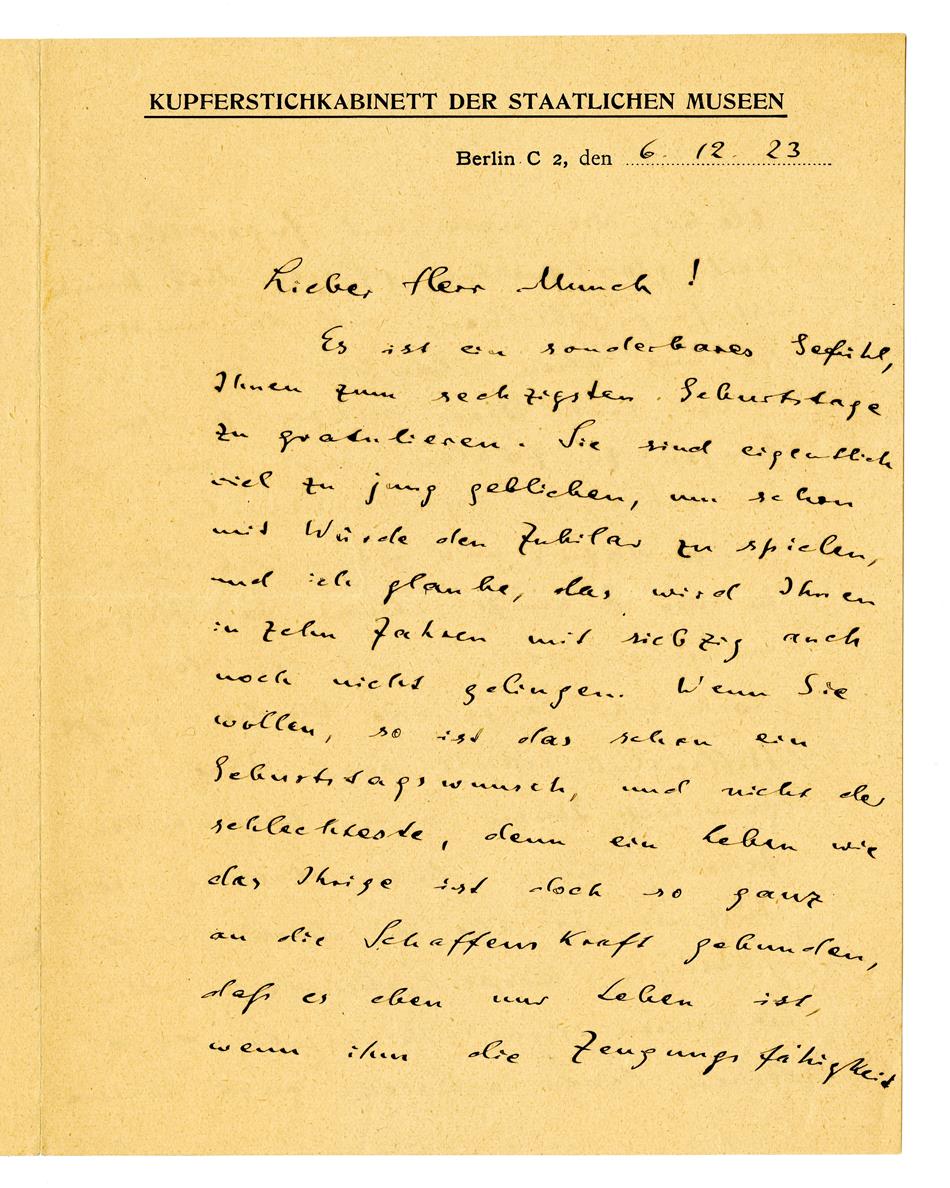 KUPFERSTICHKABINETT DER STAATLICHEN MUSEEN
Berlin C 2, den 6. 12. 23
Lieber Herr Munch!
Es ist ein sonderbares Gefühl,
Ihnen zum sechzigsten Geburtstage
zu gratulieren. Sie sind eigentlich
viel zu jung geblieben, um schon
mit Würde den Jubilar zu spielen,
und ich glaube, das wird Ihnen
in zehn Jahren mit siebzig auch
noch nicht gelingen. Wenn Sie
wollen, so ist das schon ein
Geburtstagswunsch, und nicht der
schlechteste, denn ein Leben wie
das Ihrige ist doch so ganz
an die Schaffenskraft gebunden,
daß es eben nur Leben ist,
wenn ihm die Zeugungsfähigkeit